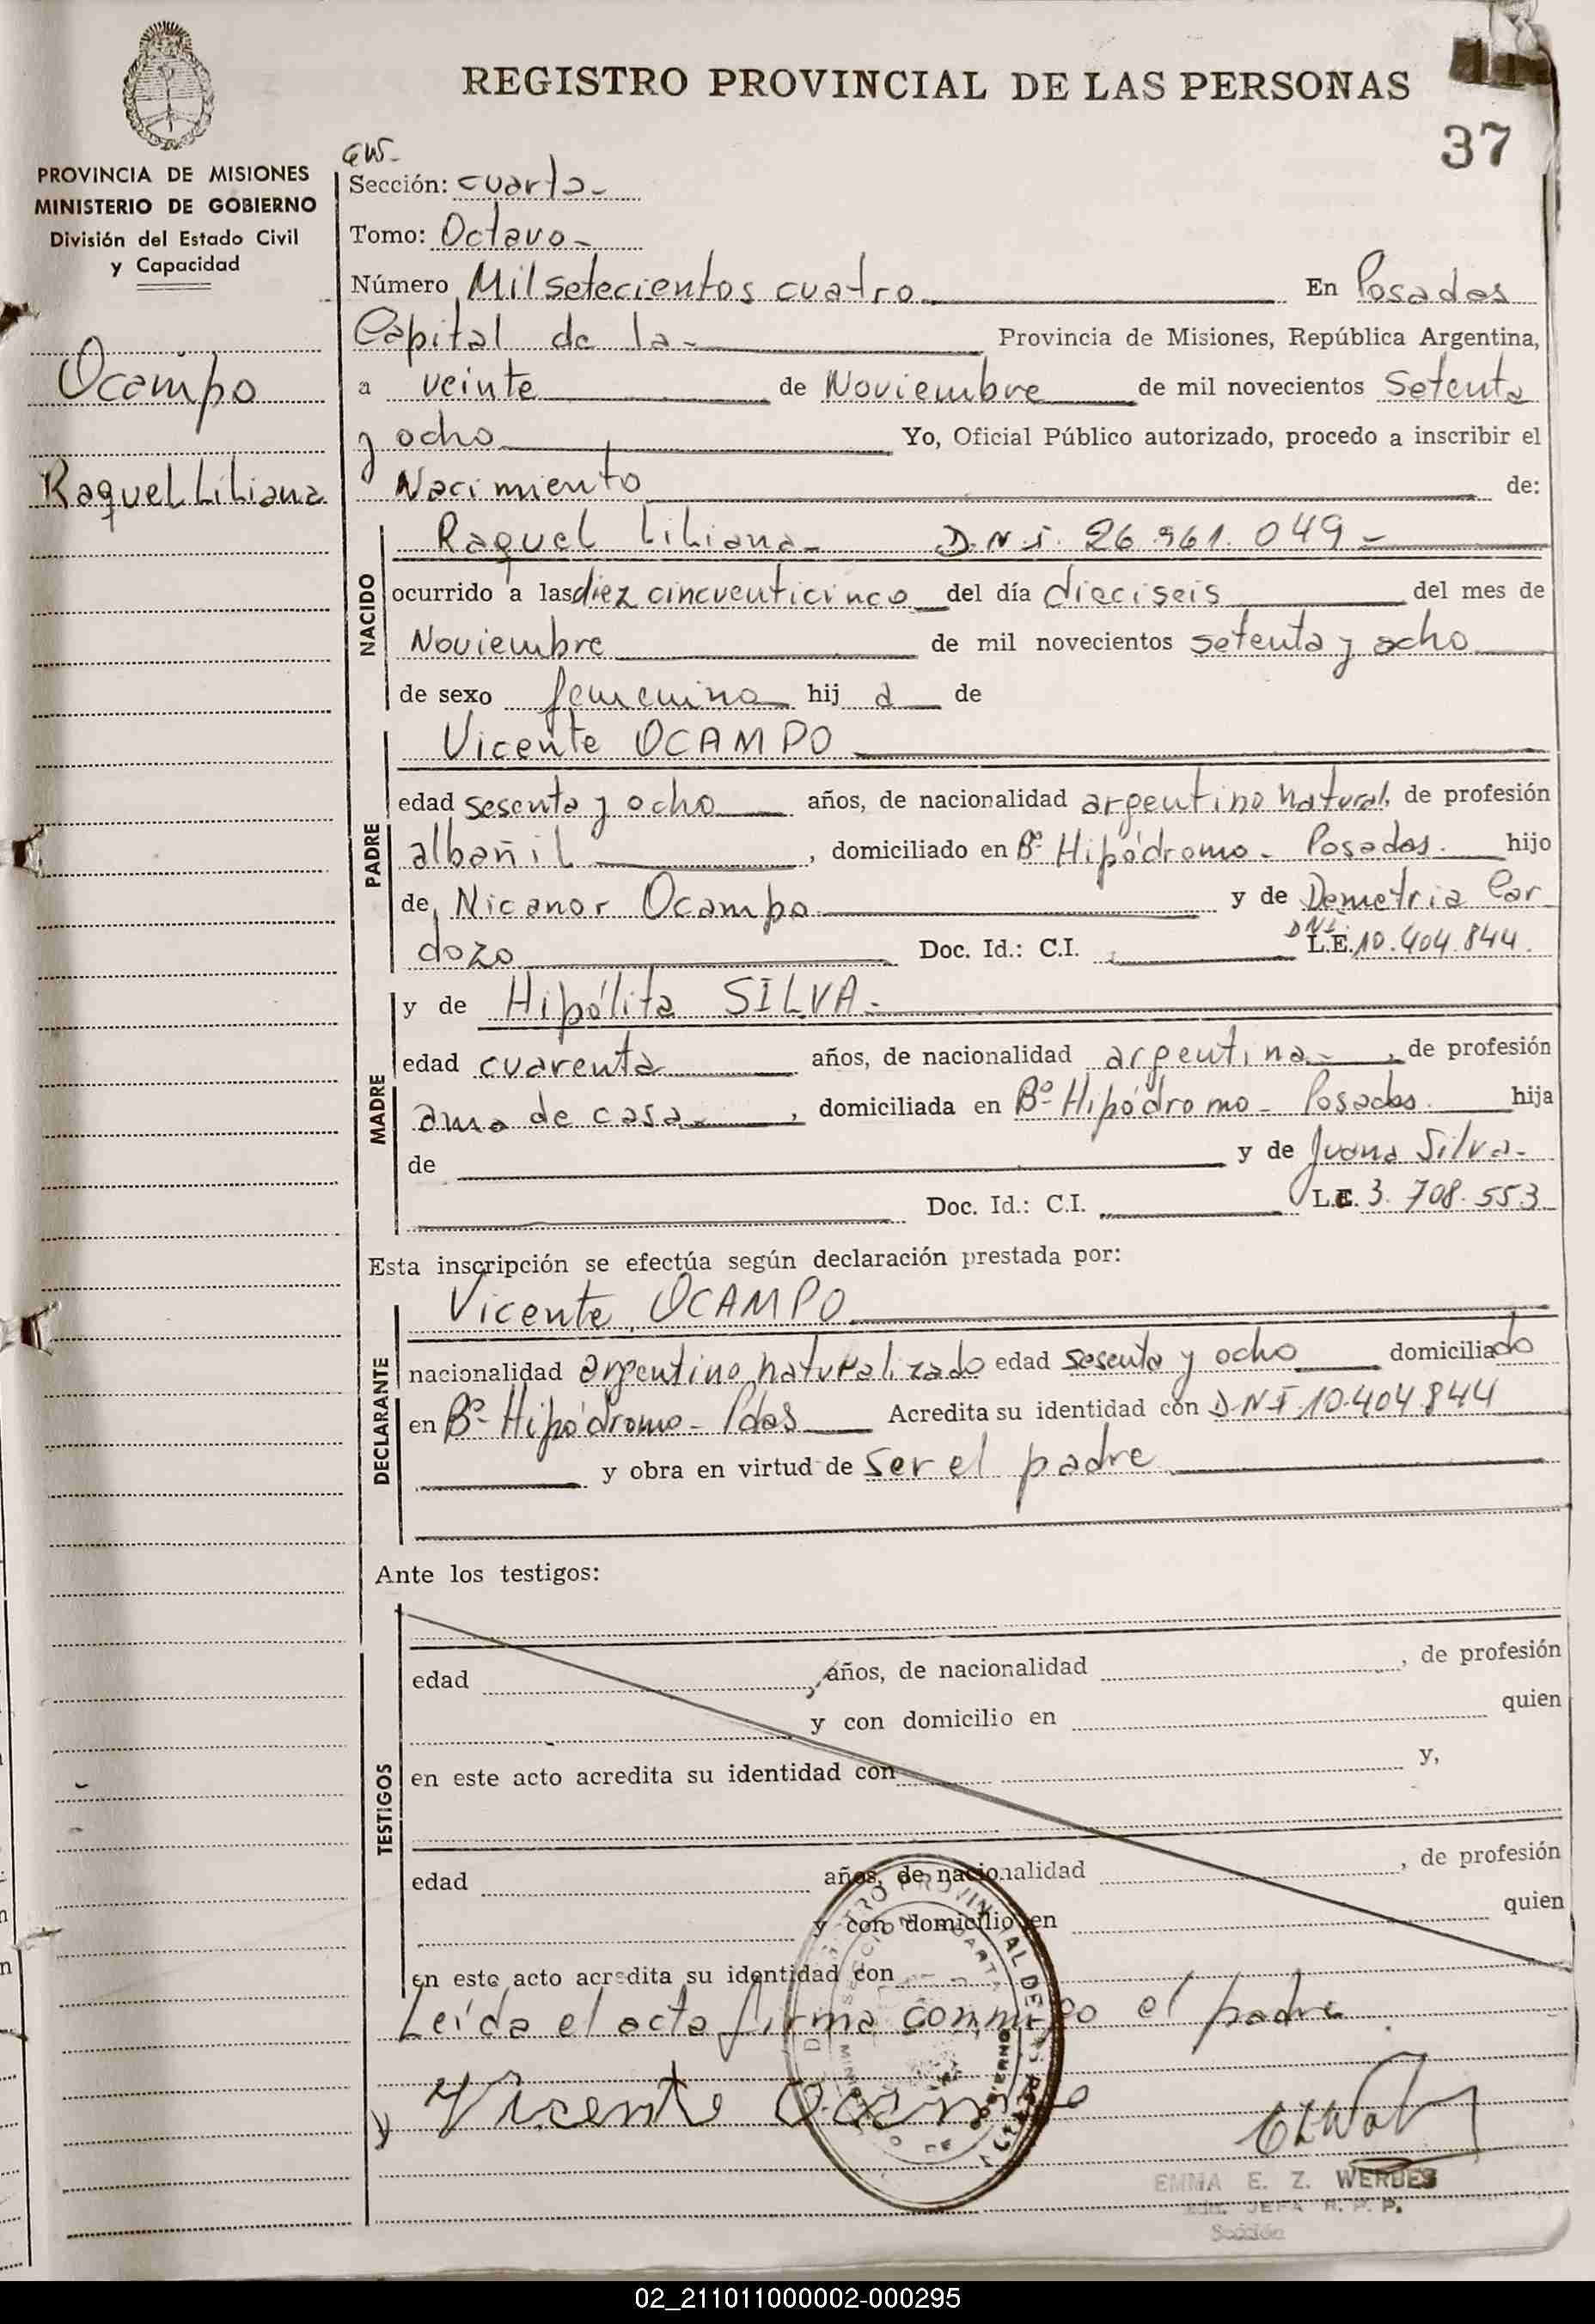 REGISTRO PROVINCIAL DE LAS PERSONAS
37
PROVINCIA DE MISIONES
MINISTERIO DE GOBIERNO
División del Estado Civil
y Capacidad
Ocampo
Raquel Liliana
Sección: cuarta-
Tomo: Octavo-
Número Mil setecientos cuatro En Posadas
Capital de la- Provincia de Misiones, República Argentina,
a veinte de Noviembre de mil novecientos setenta
y ocho Yo, Oficial Público autorizado, procedo a inscribir el
Nacimiento de:
NACIDO
Raquel Liliana- D.N.I. 26.961.049-
ocurrido a las diez cincuenticinco del día dieciseis del mes de
Noviembre de mil novecientos setenta y ocho
de sexo femenino hij a de
PADRE
Vicente OCAMPO
edad sesenta y ocho años, de nacionalidad argentino natural, de profesión
albañil, domiciliado en Bº Hipódromo- Posadas. hijo
de Nicanor Ocampo y de Demetria Car
dozo Doc. Id.: C.I. DNI. L.E. 10.404.844.
MADRE
y de Hipólita SILVA-
edad cuarenta años, de nacionalidad argentina-, de profesión
ama de casa-, domiciliada en Bº- Hipódromo- Posadas. hija
de y de Juana Silva-
Doc. Id.: C.I. L.C. 3.708.553
Esta inscripción se efectúa según declaración prestada por:
DECLARANTE
Vicente OCAMPO
nacionalidad argentino naturalizado edad sesenta y ocho domiciliado
en Bº- Hipódromo- Pdas Acredita su identidad con D.N.I 10.404.844
y obra en virtud de ser el padre
Ante los testigos:
TESTIGOS
edad años, de nacionalidad , de profesión
y con domicilio en quien
en este acto acredita su identidad con y,
edad años, de nacionalidad , de profesión
y con domicilio en quien
en este acto acredita su identidad con
Leída el acta firma conmigo el padre
Vicente Ocampo
EMMA E. Z. WERBES
JEFA R. P. P.
Sección
02_211011000002-000295